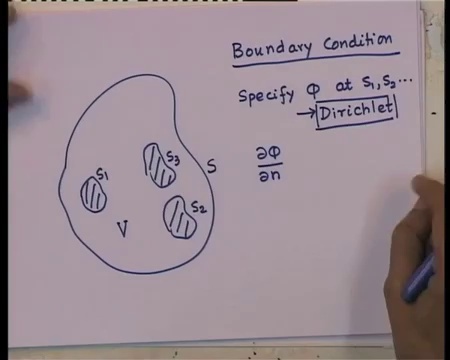 Boundary Condition
Specify Φ at S₁, S₂ ...
→ Dirichlet
∂Φ
∂n
S₁
S₃
S
S₂
V